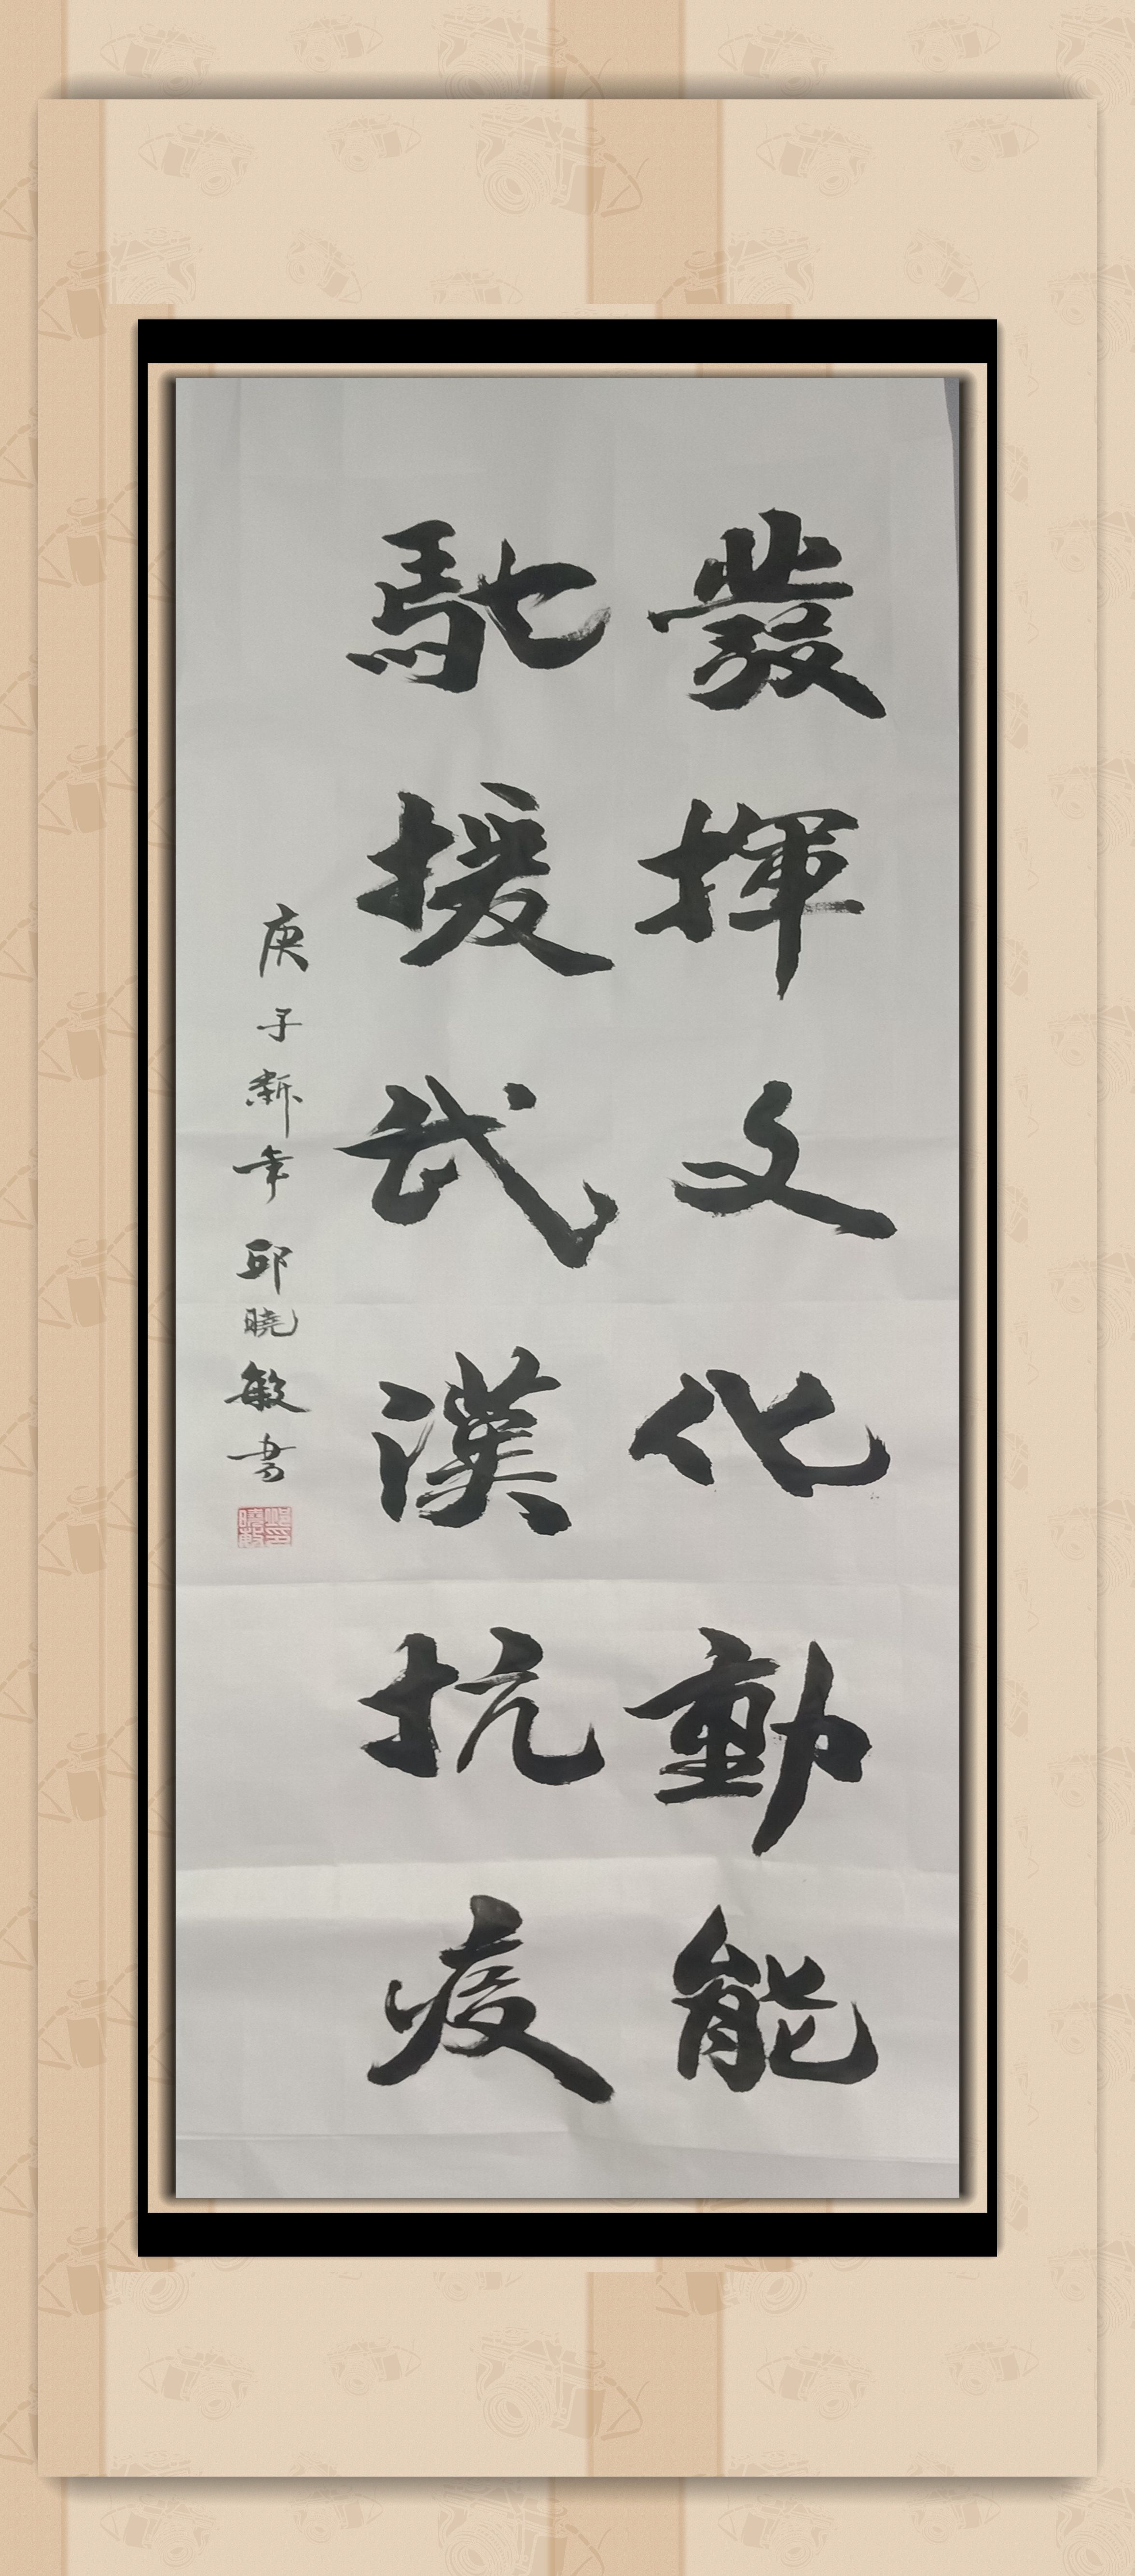 發揮文化動能
馳援武漢抗疫
庚子新年邱曉敏書